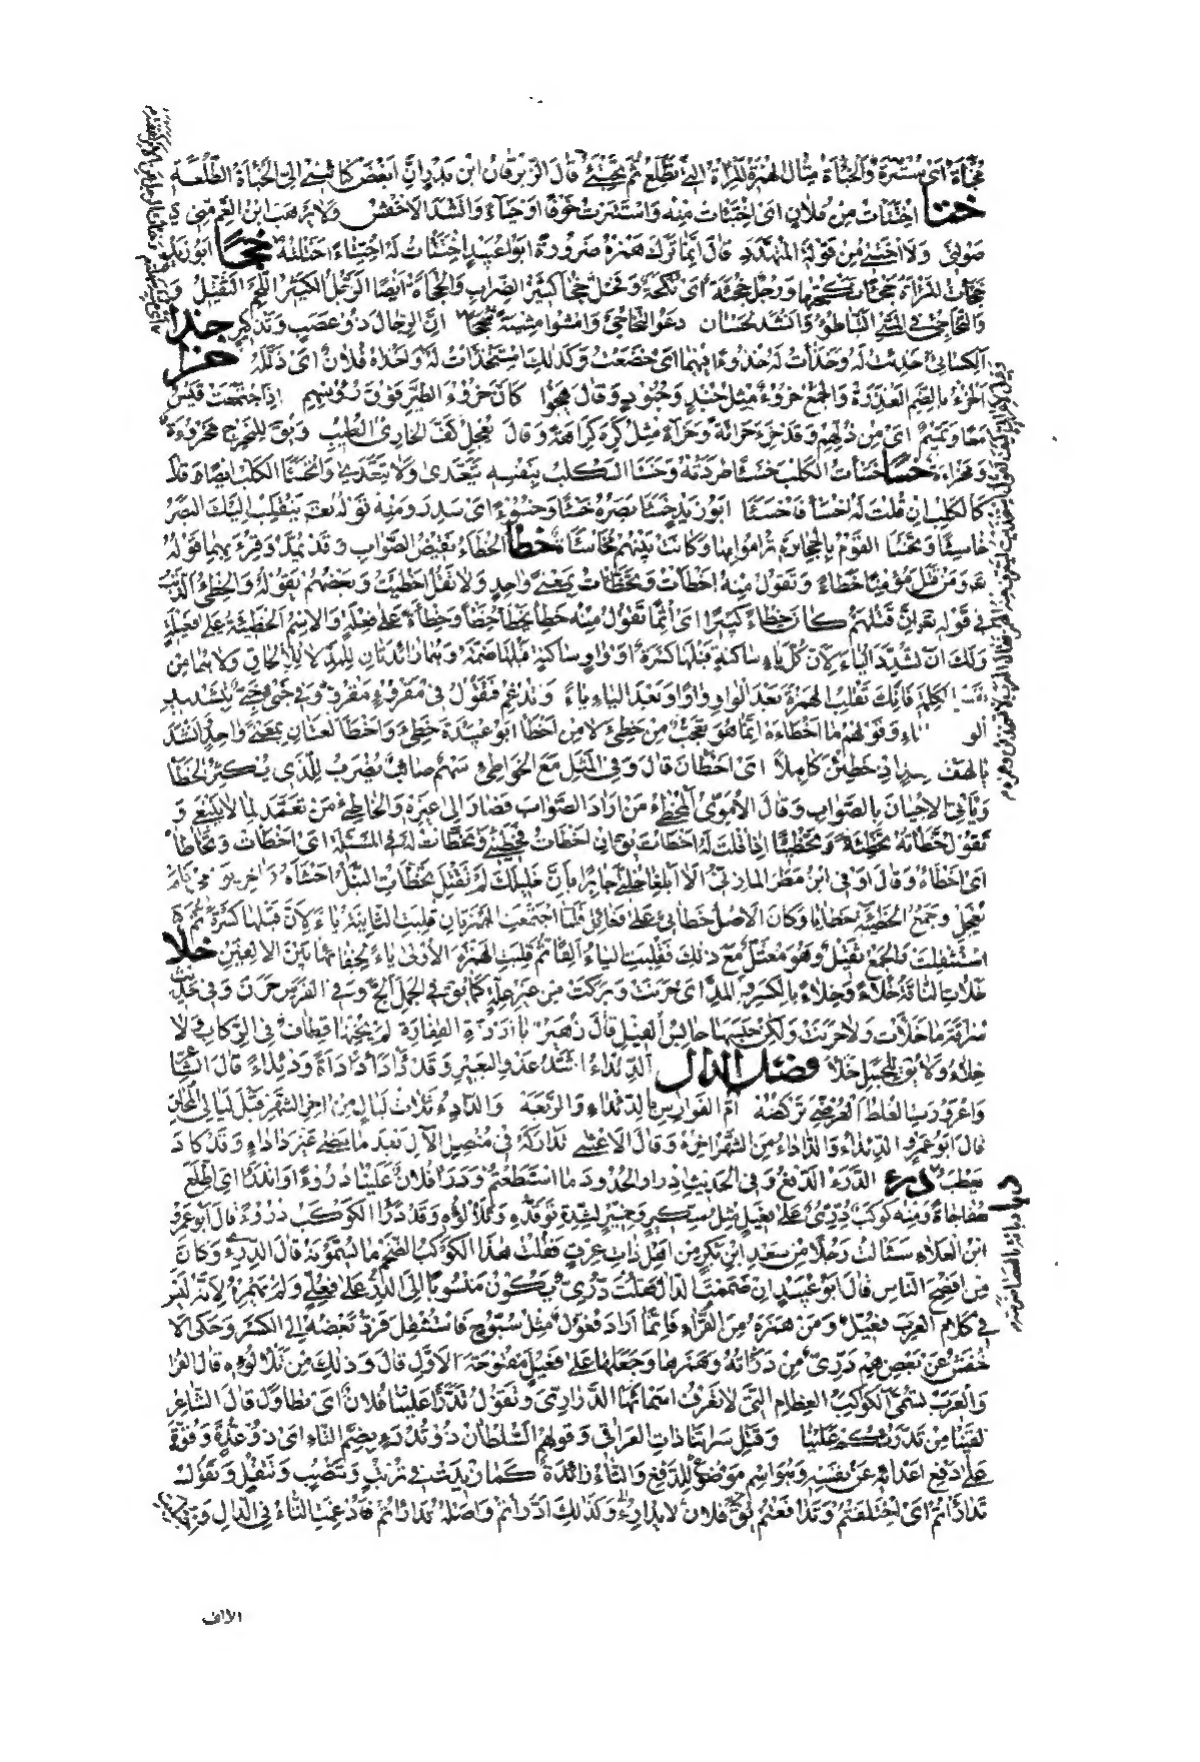 مُخْبَأَةٌ اى مُسْتَتِرَةٌ وَالخُبَأَةُ مِثَالُ الهُمَزَةِ المَرْأَةُ الَّتِى تَطَّلِعُ ثُمَّ تَخْتَبِئُ قَالَ الزِّبْرِقَانُ ابْنُ بَدْرٍ اِنَّ اَبْغَضَ كَنَائِنِى اِلَىَّ الخُبَأَةُ الطُّلَعَةُ
ختا اخْتَتَأْتُ مِنْ فُلَانٍ اى اخْتَبَأْتُ مِنْهُ وَاسْتَتَرْتُ خَوْفًا اَوْ حَيَاءً وَاَنْشَدَ الاَخْفَشُ وَلَا يَرْهَبُ ابْنُ العَمِّ مِنِّى
صَوْلَتِى وَلَا اَخْتَتِى مِنْ قَوْلِهِ المُتَهَدِّدِ قَالَ اِنَّمَا تَرَكَ هَمْزَهُ ضَرُورَةً اَبُو عُبَيْدٍ اخْتَتَأْتُ لَهُ اخْتِتَاءً خَتَلْتُهُ خجأ اَبُو زَيْدٍ
خَجَأْتُ المَرْأَةَ خَجْأً نَكَحْتُهَا وَرَجُلٌ خُجَأَةٌ اى نُكَحَةٌ وَفَحْلٌ خُجَأَةٌ كَثِيرُ الضِّرَابِ وَالخُجَأَةُ اَيْضًا الرَّجُلُ الكَثِيرُ اللَّحْمِ الثَّقِيلُ
وَالتَّخَاجُؤُ فِى المَشْىِ التَّبَاطُؤُ وَاَنْشَدَ لِحَسَّانَ دَعُوا التَّخَاجُؤَ وَامْشُوا مِشْيَةً سُجُحًا اِنَّ الرِّجَالَ ذَوُو عَصَبٍ وَتَذْكِيرِ خذا
الكِسَائِىُّ خَذِئْتُ لَهُ وَخَذَأْتُ لَهُ خُذُوءًا فِيهِمَا اى خَضَعْتُ وَكَذٰلِكَ اسْتَخْذَأْتُ لَهُ وَاَخْذَأَهُ فُلَانٌ اى ذَلَّلَهُ خرا
الخُرْءُ بِالضَّمِّ العَذِرَةُ وَالجَمْعُ خُرُوءٌ مِثْلُ جُنْدٍ وَجُنُودٍ وَقَالَ يَهْجُو كَاَنَّ خُرُوءَ الطَّيْرِ فَوْقَ رُؤُوسِهِمْ اِذَا اجْتَمَعَتْ قَيْسٌ
مَعًا وَتَمِيمُ اى مِنْ ذُلِّهِمْ وَقَدْ خَرِئَ خَرَاءَةً مِثْلُ كَرِهَ كَرَاهَةً وَقَالَ يُعْجِلُ كَفَّ الخَارِئِ المُطِيبِ وَيُقَالُ لِلْمَخْرَجِ مَخْرُوءَةٌ
وَمَخْرَأَةٌ خسأ خَسَأْتُ الكَلْبَ خَسْئًا طَرَدْتُهُ وَخَسَأَ الكَلْبُ بِنَفْسِهِ يَتَعَدَّى وَلَا يَتَعَدَّى وَانْخَسَأَ الكَلْبُ اَيْضًا وَقَالَ
كَالكَلْبِ اِنْ قُلْتَ لَهُ اخْسَأْ فَانْخَسَأْ اَبُو زَيْدٍ خَسَأَ بَصَرُهُ خَسْئًا وَخُسُوءًا اى سَدِرَ وَمِنْهُ قَوْلُهُ تَعَ يَنْقَلِبْ اِلَيْكَ البَصَرُ
خَاسِئًا وَتَخَاسَأَ القَوْمُ بِالحِجَارَةِ تَرَامَوْا بِهَا وَكَانَتْ بَيْنَهُمْ مُخَاسَأَةٌ خطأ الخَطَأُ نَقِيضُ الصَّوَابِ وَقَدْ يُمَدُّ وَقُرِئَ بِهِمَا قَوْلُهُ
تَعَ وَمَنْ قَتَلَ مُؤْمِنًا خَطَأً وَتَقُولُ مِنْهُ اَخْطَأْتُ وَتَخَطَّأْتُ بِمَعْنًى وَاحِدٍ وَلَا تَقُلْ اَخْطَيْتُ وَبَعْضُهُمْ يَقُولُهُ وَالخِطْءُ الذَّنْبُ
فِى قَوْلِهِ تَعَ اِنَّ قَتْلَهُمْ كَانَ خِطْأً كَبِيرًا اى اِثْمًا تَقُولُ مِنْهُ خَطِئَ يَخْطَأُ خِطْأً وَخِطْأَةً عَلَى فِعْلَةٍ وَالاِسْمُ الخَطِيئَةُ عَلَى فَعِيلَةٍ
وَلَكَ اَنْ تُشَدِّدَ اليَاءَ لِاَنَّ كُلَّ يَاءٍ سَاكِنَةٍ قَبْلَهَا كَسْرَةٌ اَوْ وَاوٍ سَاكِنَةٍ قَبْلَهَا ضَمَّةٌ وَهُمَا زَائِدَتَانِ لِلْمَدِّ لَا لِلاِلْحَاقِ وَلَا هُمَا مِنْ
نَفْسِ الكَلِمَةِ فَاِنَّكَ تَقْلِبُ الهَمْزَةَ بَعْدَ الوَاوِ وَاوًا وَبَعْدَ اليَاءِ يَاءً وَتُدْغِمُ فَتَقُولُ فِى مَقْرُوءٍ مَقْرُوٌّ وَفِى خَبِىءٍ خَبِىٌّ بِتَشْدِيدِ
الو اءِ وَقَوْلُهُمْ مَا اَخْطَأَهُ اِنَّمَا هُوَ تَعَجُّبٌ مِنْ خَطِئَ لَا مِنْ اَخْطَأَ اَبُو عُبَيْدَةَ خَطِئَ وَاَخْطَأَ لُغَتَانِ بِمَعْنًى وَاحِدٍ اَنْشَدَ
يَا لَهْفَ هِنْدٍ اِذْ خَطِئْنَ كَاهِلًا اى اَخْطَأْنَ قَالَ وَفِى المَثَلِ مَعَ الخَوَاطِئِ سَهْمٌ صَائِبٌ يُضْرَبُ لِلَّذِى يُكْثِرُ الخَطَأَ
وَيَأْتِى الاَحْيَانَ بِالصَّوَابِ وَقَالَ الاُمَوِىُّ المُخْطِئُ مَنْ اَرَادَ الصَّوَابَ فَصَارَ اِلَى غَيْرِهِ وَالخَاطِئُ مَنْ تَعَمَّدَ لِمَا لَا يَنْبَغِى وَ
تَقُولُ خَطَّأْتُهُ تَخْطِئَةً وَتَخْطِيئًا اِذَا قُلْتَ لَهُ اَخْطَأْتَ يُقَالُ اِنْ اَخْطَأْتُ فَخَطِّئْنِى وَتَخَطَّأْتُ لَهُ فِى المَسْئَلَةِ اى اَخْطَأْتُ وَتَخَاطَأَهُ
اى اَخْطَأَهُ وَقَالَ اَوْفَى ابْنُ مَطَرٍ المَازِنِىُّ اَلَا اَبْلِغَا خُلَّتِى جَابِرًا بِاَنَّ خَلِيلَكِ لَمْ يُقْتَلِ تَخَطَّأَتِ النَّبْلُ اَحْشَاءَهُ وَاُخِّرَ يَوْمِى فَلَمْ
يَعْجَلِ وَجَمْعُ الخَطِيئَةِ خَطَايَا وَكَانَ الاَصْلُ خَطَائِئُ عَلَى فَعَائِلَ فَلَمَّا اجْتَمَعَتِ الهَمْزَتَانِ قُلِبَتِ الثَّانِيَةُ يَاءً لِاَنَّ قَبْلَهَا كَسْرَةً ثُمَّ
اسْتُثْقِلَتْ وَالجَمْعُ ثَقِيلٌ وَهُوَ مُعْتَلٌّ مَعَ ذٰلِكَ فَقُلِبَتِ اليَاءُ اَلِفًا ثُمَّ قُلِبَتِ الهَمْزَةُ الاُولَى يَاءً لِخَفَائِهَا بَيْنَ الاَلِفَيْنِ خلأ
خَلَأَتِ النَّاقَةُ خَلْأً وَخِلَاءً بِالكَسْرِ وَالمَدِّ اى حَرَنَتْ وَبَرَكَتْ مِنْ غَيْرِ عِلَّةٍ كَمَا يُقَالُ فِى الجَمَلِ اَلَحَّ وَفِى الفَرَسِ حَرَنَ وَفِى حَدِيثِ
سُرَاقَةَ مَا خَلَأَتْ وَلَا حَرَنَتْ وَلٰكِنْ حَبَسَهَا حَابِسُ الفِيلِ قَالَ زُهَيْرٌ بِآرِزَةِ الفَقَارَةِ لَمْ يَخُنْهَا قِطَافٌ فِى الرِّكَابِ وَلَا
خِلَاءُ وَلَا يُقَالُ لِلْجَمَلِ خَلَأَ فصل الدال الدِّئْدَاءُ اَشَدُّ عَدْوِ البَعِيرِ وَقَدْ دَأْدَأَ دَأْدَأَةً وَدِئْدَاءً قَالَ الشَّاعِرُ
وَاعْرَوْرَتِ العُلُطَ العُرْضِىَّ تَرْكُضُهُ اُمُّ الفَوَارِسِ بِالدِّئْدَاءِ وَالرَّبَعَهْ وَالدَّآدِئُ ثَلَاثُ لَيَالٍ مِنْ آخِرِ الشَّهْرِ قَبْلَ لَيَالِى المُحَاقِ
قَالَ اَبُو عَمْرٍو الدِّئْدَاءُ وَالدَّأْدَاءُ مِنَ الشَّهْرِ آخِرُهُ وَقَالَ الاَعْشَى تَدَارَكَهُ فِى مُنْصِلِ الاَلِّ بَعْدَ مَا مَضَى غَيْرَ دَأْدَاءٍ وَقَدْ كَادَ
يَعْطَبُ درء الدَّرْءُ الدَّفْعُ وَفِى الحَدِيثِ اِدْرَأُوا الحُدُودَ مَا اسْتَطَعْتُمْ وَدَرَأَ فُلَانٌ عَلَيْنَا دُرُوءًا وَانْدَرَأَ اى اِطَّلَعَ
مُفَاجَأَةً وَمِنْهُ كَوْكَبٌ دِرِّىءٌ عَلَى فِعِّيلٍ مِثْلُ سِكِّيرٍ وَخِمِّيرٍ لِشِدَّةِ تَوَقُّدِهِ وَتَلَأْلُؤِهِ وَقَدْ دَرَأَ الكَوْكَبُ دُرُوءًا قَالَ اَبُو عَمْرِو
ابْنُ العَلَاءِ سَئَالْتُ رَجُلًا مِنْ سَعْدِ ابْنِ بَكْرٍ مِنْ اَهْلِ ذَاتِ عِرْقٍ فَقُلْتُ هٰذَا الكَوْكَبُ الضَّخْمُ مَا تُسَمُّونَهُ قَالَ الدِّرِّىءَ وَكَانَ
مِنْ اَفْصَحِ النَّاسِ قَالَ اَبُو عُبَيْدٍ اِنْ ضَمَمْتَ الدَّالَ قُلْتَ دُرِّىٌّ يَكُونُ مَنْسُوبًا اِلَى الدُّرِّ عَلَى فُعْلِىٍّ وَلَمْ تَهْمِزْهُ لِاَنَّهُ لَيْسَ
فِى كَلَامِ العَرَبِ فُعِّيلٌ وَمَنْ هَمَزَهُ مِنَ القُرَّاءِ فَاِنَّمَا اَرَادَ فُعُّولٌ مِثْلُ سُبُّوحٍ فَاسْتَثْقَلَ فَرَدَّ بَعْضَهُ اِلَى الكَسْرِ وَحَكَى الا
خْفَشُ عَنْ بَعْضِهِمْ دَرِّىءٌ مِنْ دَرَأْتُهُ وَهَمَزَهَا وَجَعَلَهَا عَلَى فَعِّيلٍ مَفْتُوحَةَ الاَوَّلِ قَالَ وَذٰلِكَ مِنْ تَلَأْلُؤِهِ قَالَ الفَرَّا
وَالعَرَبُ تُسَمِّى الكَوَاكِبَ العِظَامَ الَّتِى لَا تَعْرِفُ اَسْمَائَهَا الدَّرَارِىَّ وَتَقُولُ تَدَرَّأَ عَلَيْنَا فُلَانٌ اى تَطَاوَلَ قَالَ الشَّاعِرُ
لَقِينَا مِنْ تَدَرُّئِكُمْ عَلَيْنَا وَقَتْلِ سَرَاتِنَا ذَاتَ العَرَاقِى وَقَوْلُهُمْ السُّلْطَانُ ذُو تُدْرَءٍ بِضَمِّ التَّاءِ اى ذُو عُدَّةٍ وَقُوَّةٍ
عَلَى دَفْعِ اَعْدَائِهِ عَنْ نَفْسِهِ وَهُوَ اسْمٌ مَوْضُوعٌ لِلدَّفْعِ وَالتَّاءُ زَائِدَةٌ كَمَا زِيدَتْ فِى تُرْتُبٍ وَتَنْضُبٍ وَتَتْفُلٍ وَتَقُولُ
تَدَارَأْتُمْ اى اخْتَلَفْتُمْ وَتَدَافَعْتُمْ يُقَالُ فُلَانٌ لَا يُدَارِئُ وَكَذٰلِكَ ادَّارَأْتُمْ وَاَصْلُهُ تَدَارَأْتُمْ فَاُدْغِمَتِ التَّاءُ فِى الدَّالِ
الالف